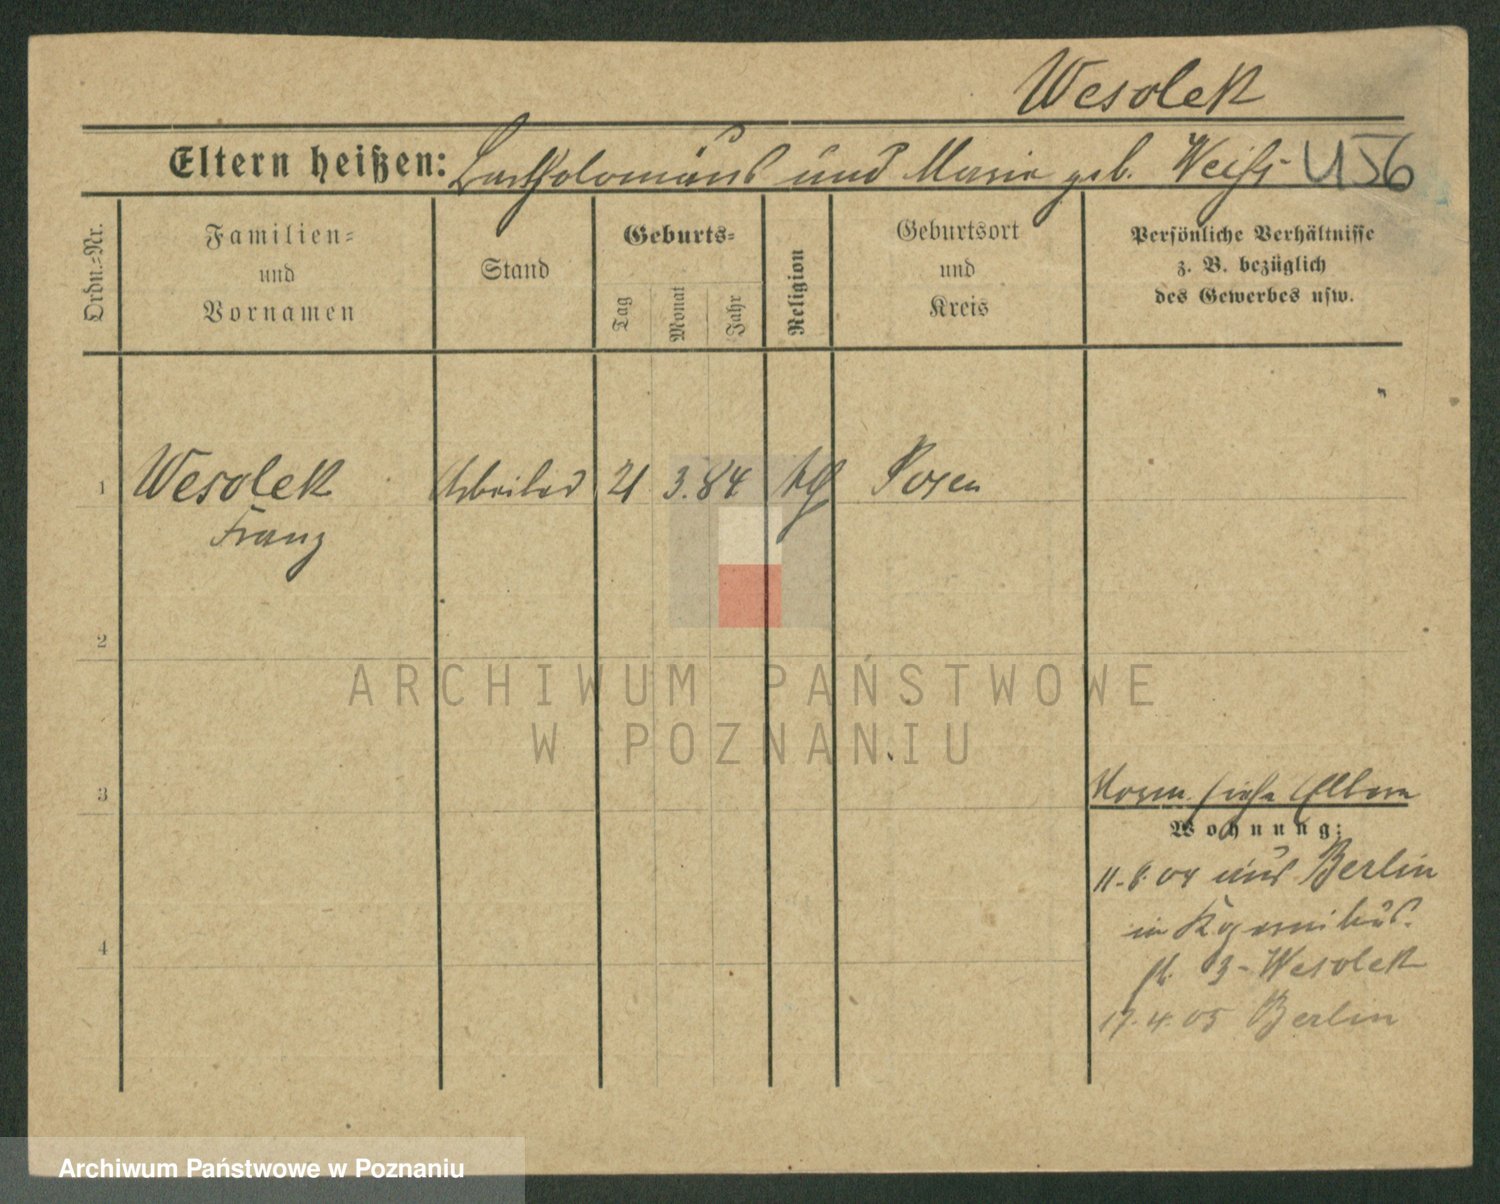 Wesolek
Eltern heißen: Bartholomäus und Maria geb. Weiß U56
Ordn.-Nr.
Familien-
und
Vornamen
Stand
Geburts-
Tag
Monat
Jahr
Religion
Geburtsort
und
Kreis
Persönliche Verhältnisse
z. B. bezüglich
des Gewerbes usw.
1 Wesolek Arbeiter 21 3. 84 kth Posen
Franz
2
3
siehe Eltern
Wohnung:
11. 6. 04 aus Berlin
in
3 - Wesolek
4
17. 4. 05 Berlin
ARCHIWUM PAŃSTWOWE
W POZNANIU
Archiwum Państwowe w Poznaniu